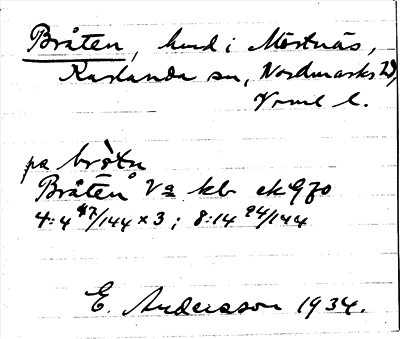 Bråten, hmd i Mörtnäs,
Karlanda sn, Nordmarks hd,
Vrml l.
pa brò̀tn
Bråten Va kb ek 970
4:4 42/144 x 3 ; 8:14 24/144
E. Andersson 1934.